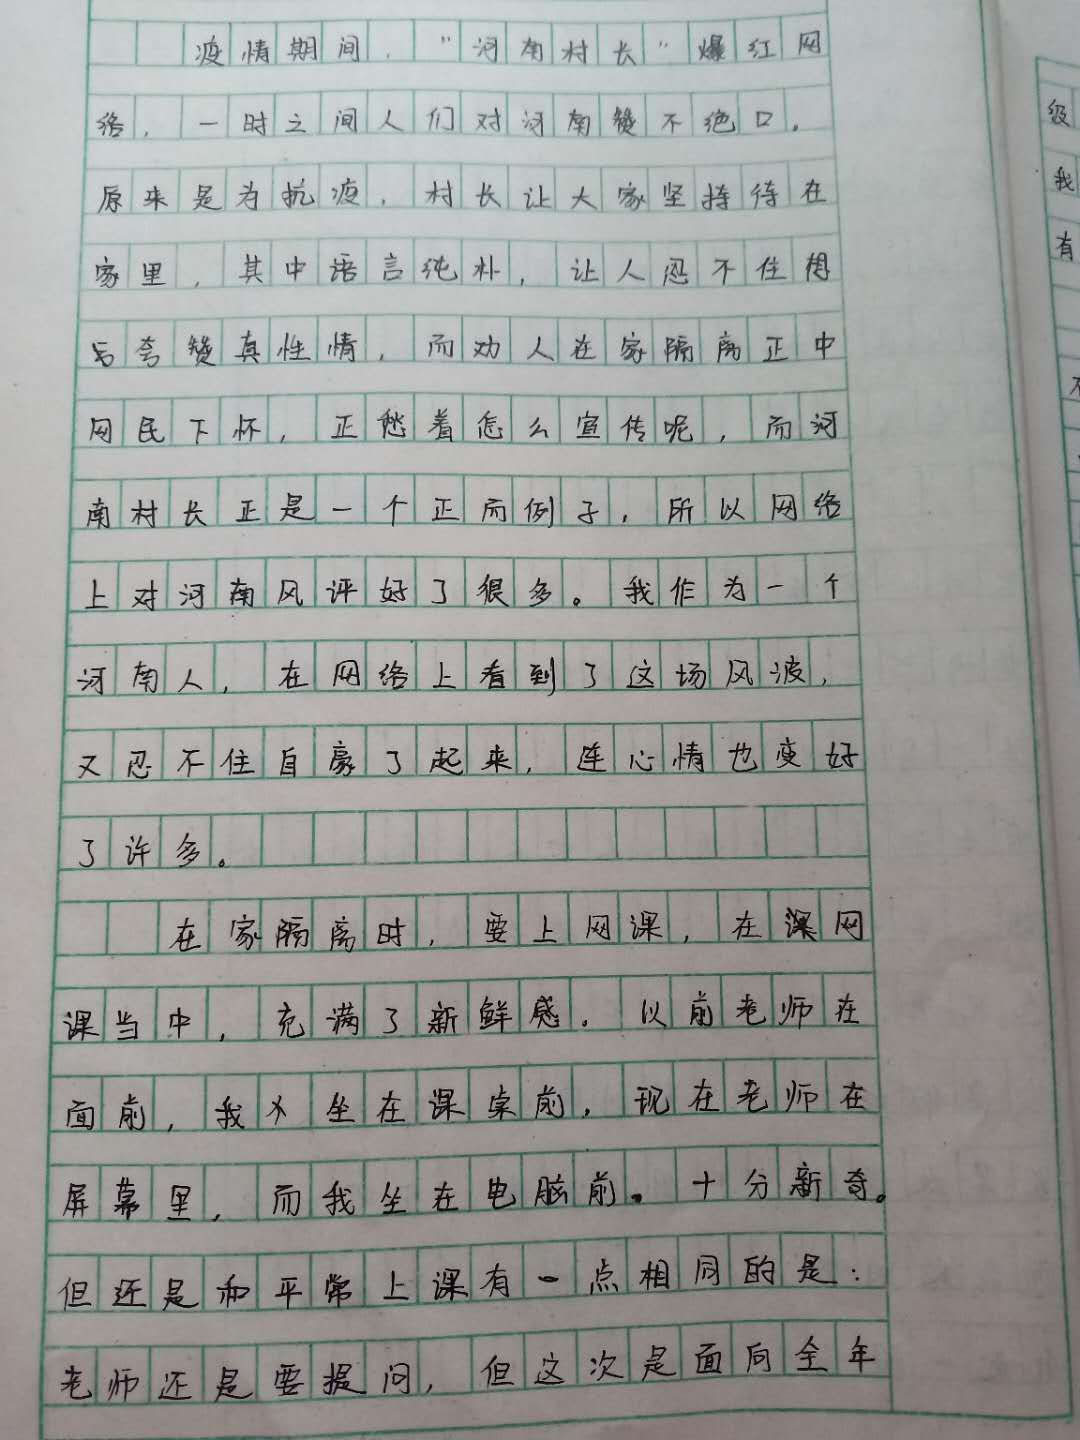 疫情期间，“河南村长”爆红网
络，一时之间人们对河南赞不绝口。
原来是为抗疫，村长让大家坚持待在
家里，其中语言纯朴，让人忍不住想
去夸赞真性情，而劝人在家隔离正中
网民下怀，正愁着怎么宣传呢，而河
南村长正是一个正面例子，所以网络
上对河南风评好了很多。我作为一个
河南人，在网络上看到了这场风波，
又忍不住自豪了起来，连心情也变好
了许多。
在家隔离时，要上网课，在网
课当中，充满了新鲜感。以前老师在
面前，我坐在课桌前，现在老师在
屏幕里，而我坐在电脑前。十分新奇。
但还是和平常上课有一点相同的是：
老师还是要提问，但这次是面向全年
级
我
有